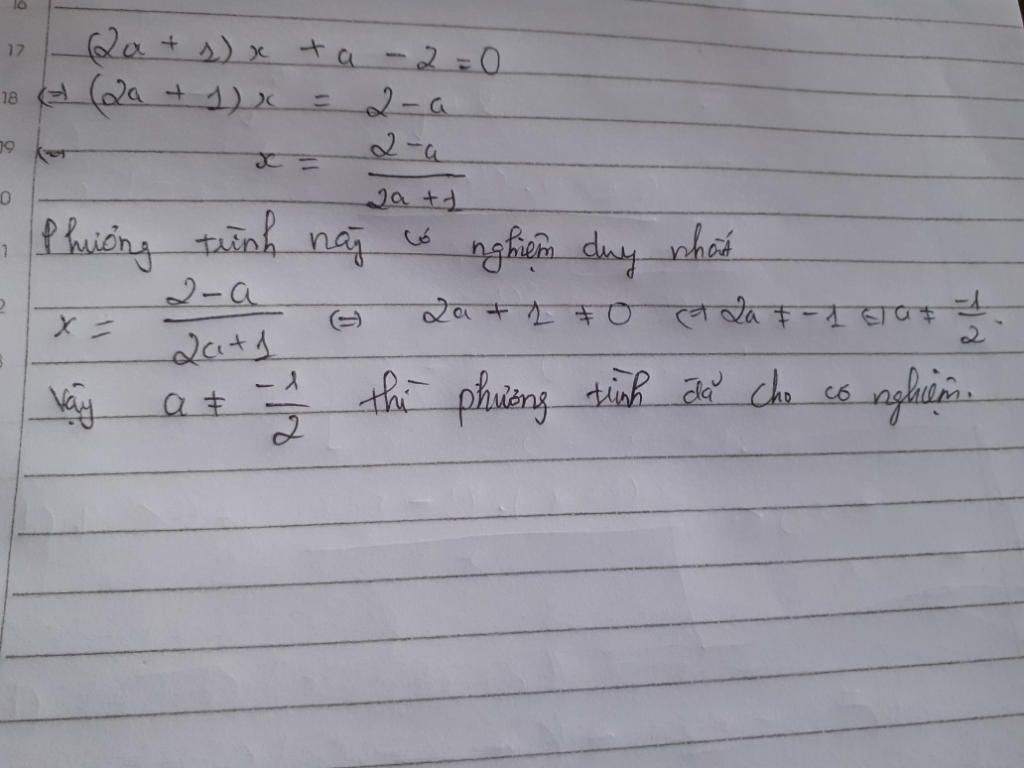 16
17 (2a + 1)x + a - 2 = 0
18 ⇔ (2a + 1)x = 2 - a
19 ⇔ x = \frac{2-a}{2a+1}
0
1 Phương trình này có nghiệm duy nhất
2 x = \frac{2-a}{2a+1} ⇔ 2a + 1 ≠ 0 ⇔ 2a ≠ -1 ⇔ a ≠ \frac{-1}{2}.
3 Vậy a ≠ \frac{-1}{2} thì phương trình đã cho có nghiệm.